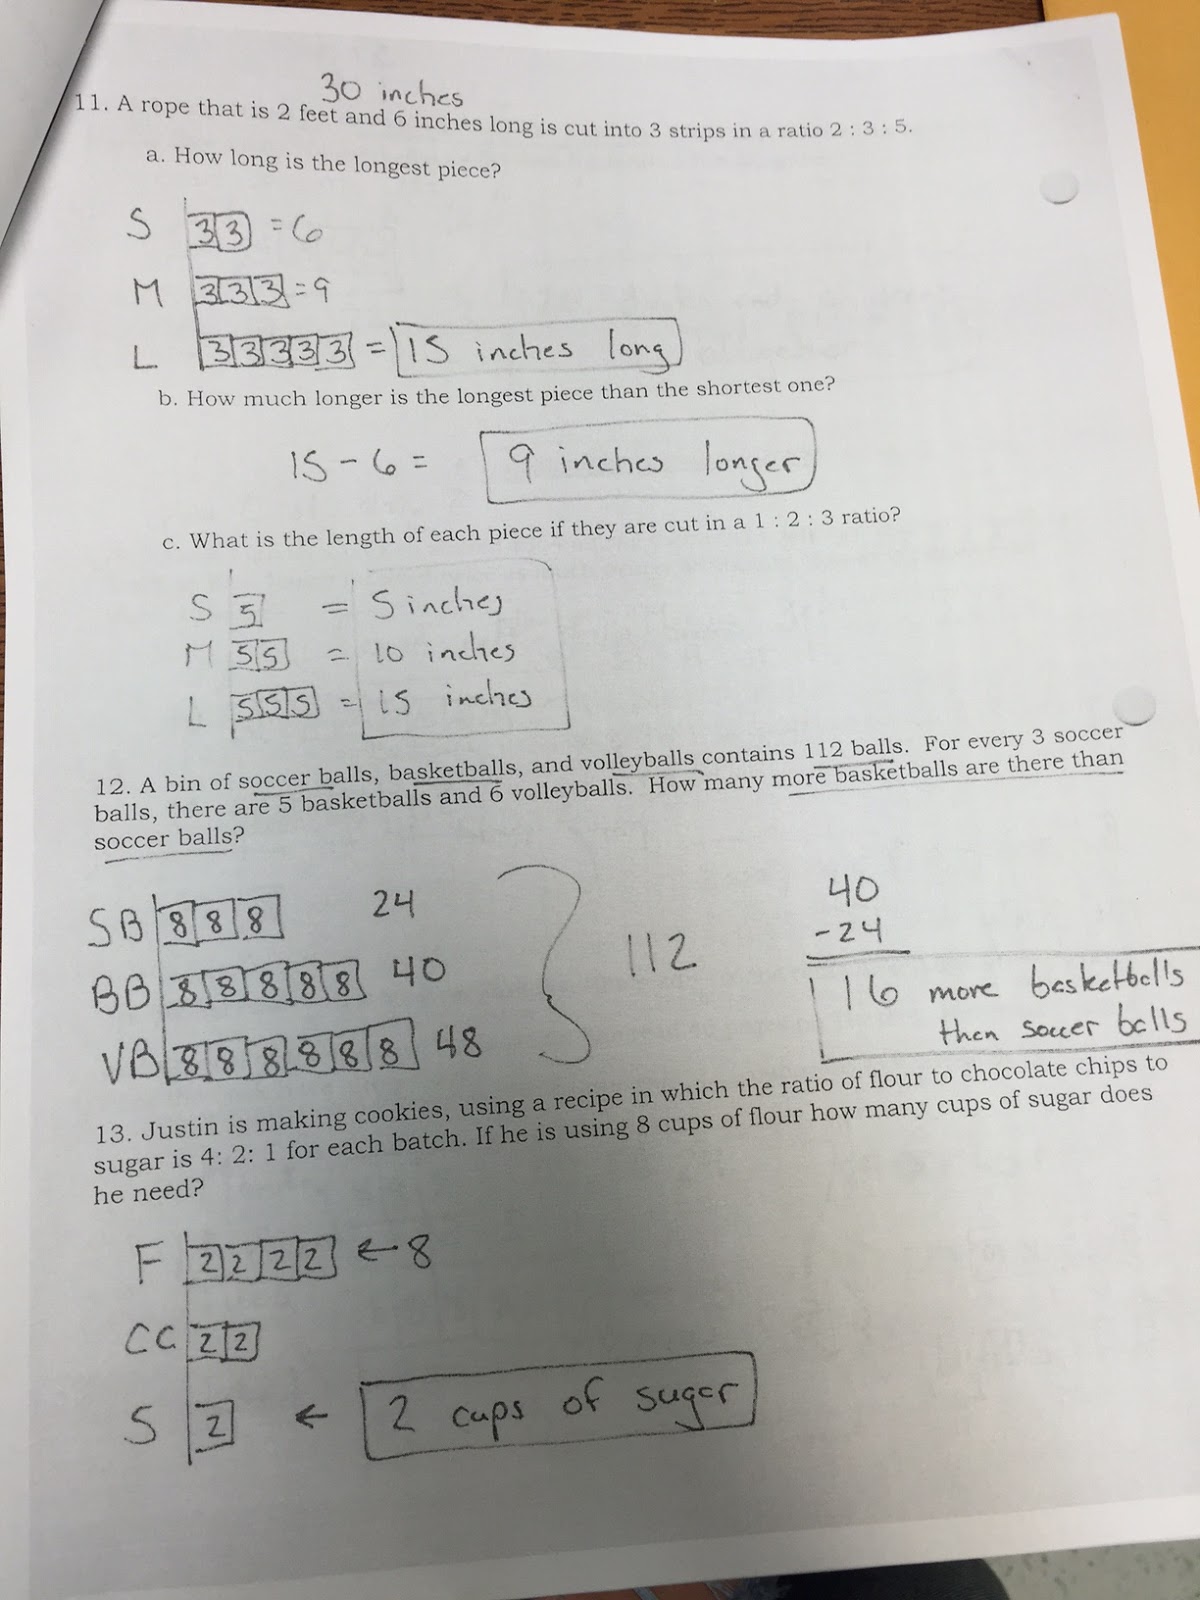 30 inches
11. A rope that is 2 feet and 6 inches long is cut into 3 strips in a ratio 2 : 3 : 5.
a. How long is the longest piece?
S 3 3 = 6
M 3 3 3 = 9
L 3 3 3 3 3 = 15 inches long
b. How much longer is the longest piece than the shortest one?
15 - 6 = 9 inches longer
c. What is the length of each piece if they are cut in a 1 : 2 : 3 ratio?
S 5 = 5 inches
M 5 5 = 10 inches
L 5 5 5 = 15 inches
12. A bin of soccer balls, basketballs, and volleyballs contains 112 balls. For every 3 soccer
balls, there are 5 basketballs and 6 volleyballs. How many more basketballs are there than
soccer balls?
SB 8 8 8 24
BB 8 8 8 8 8 40
VB 8 8 8 8 8 8 48
112
40
-24
16 more basketballs
then soccer balls
13. Justin is making cookies, using a recipe in which the ratio of flour to chocolate chips to
sugar is 4: 2: 1 for each batch. If he is using 8 cups of flour how many cups of sugar does
he need?
F 2 2 2 2 ← 8
CC 2 2
S 2 ← 2 cups of sugar